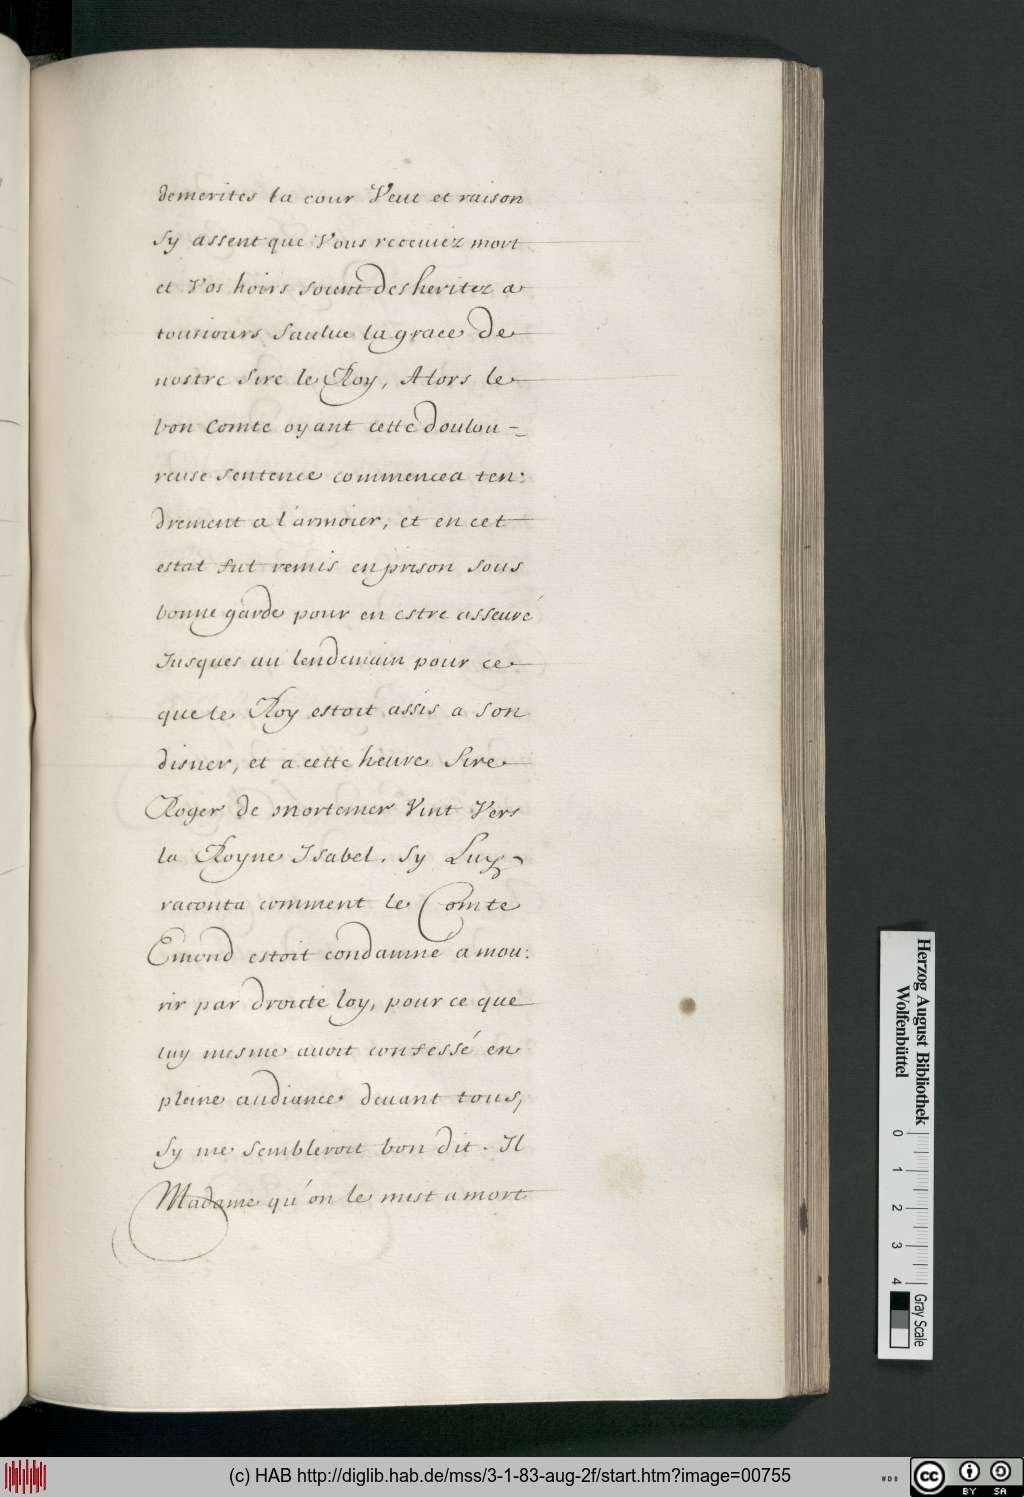 demerites la cour Veut et raison
sy assent que Vous receuiez mort
et Vos hoirs soient desheritez a
tousiours saulue la grace de
nostre sire le Roy, Alors le
bon Comte oyant cette doulou-
reuse sentence commencea ten:
drement a l'armoier, et en cet
estat fut remis en prison sous
bonne garde pour en estre asseuré
Jusques au lendemain pour ce
que le Roy estoit assis a son
disner, et a cette heure Sire
Roger de mortemer Vint Vers
la Royne Isabel. sy Luy
raconta comment le Comte
Emond estoit condamné a mou:
rir par droicte loy, pour ce que
luy mesme auoit confessé en
pleine audiance deuant tous,
Sy me sembleroit bon dit. Il
Madame qu'on le mist a mort
Herzog August Bibliothek
Wolfenbüttel
0 1 2 3 4
Gray Scale
(c) HAB http://diglib.hab.de/mss/3-1-83-aug-2f/start.htm?image=00755
WDB
cc BY SA